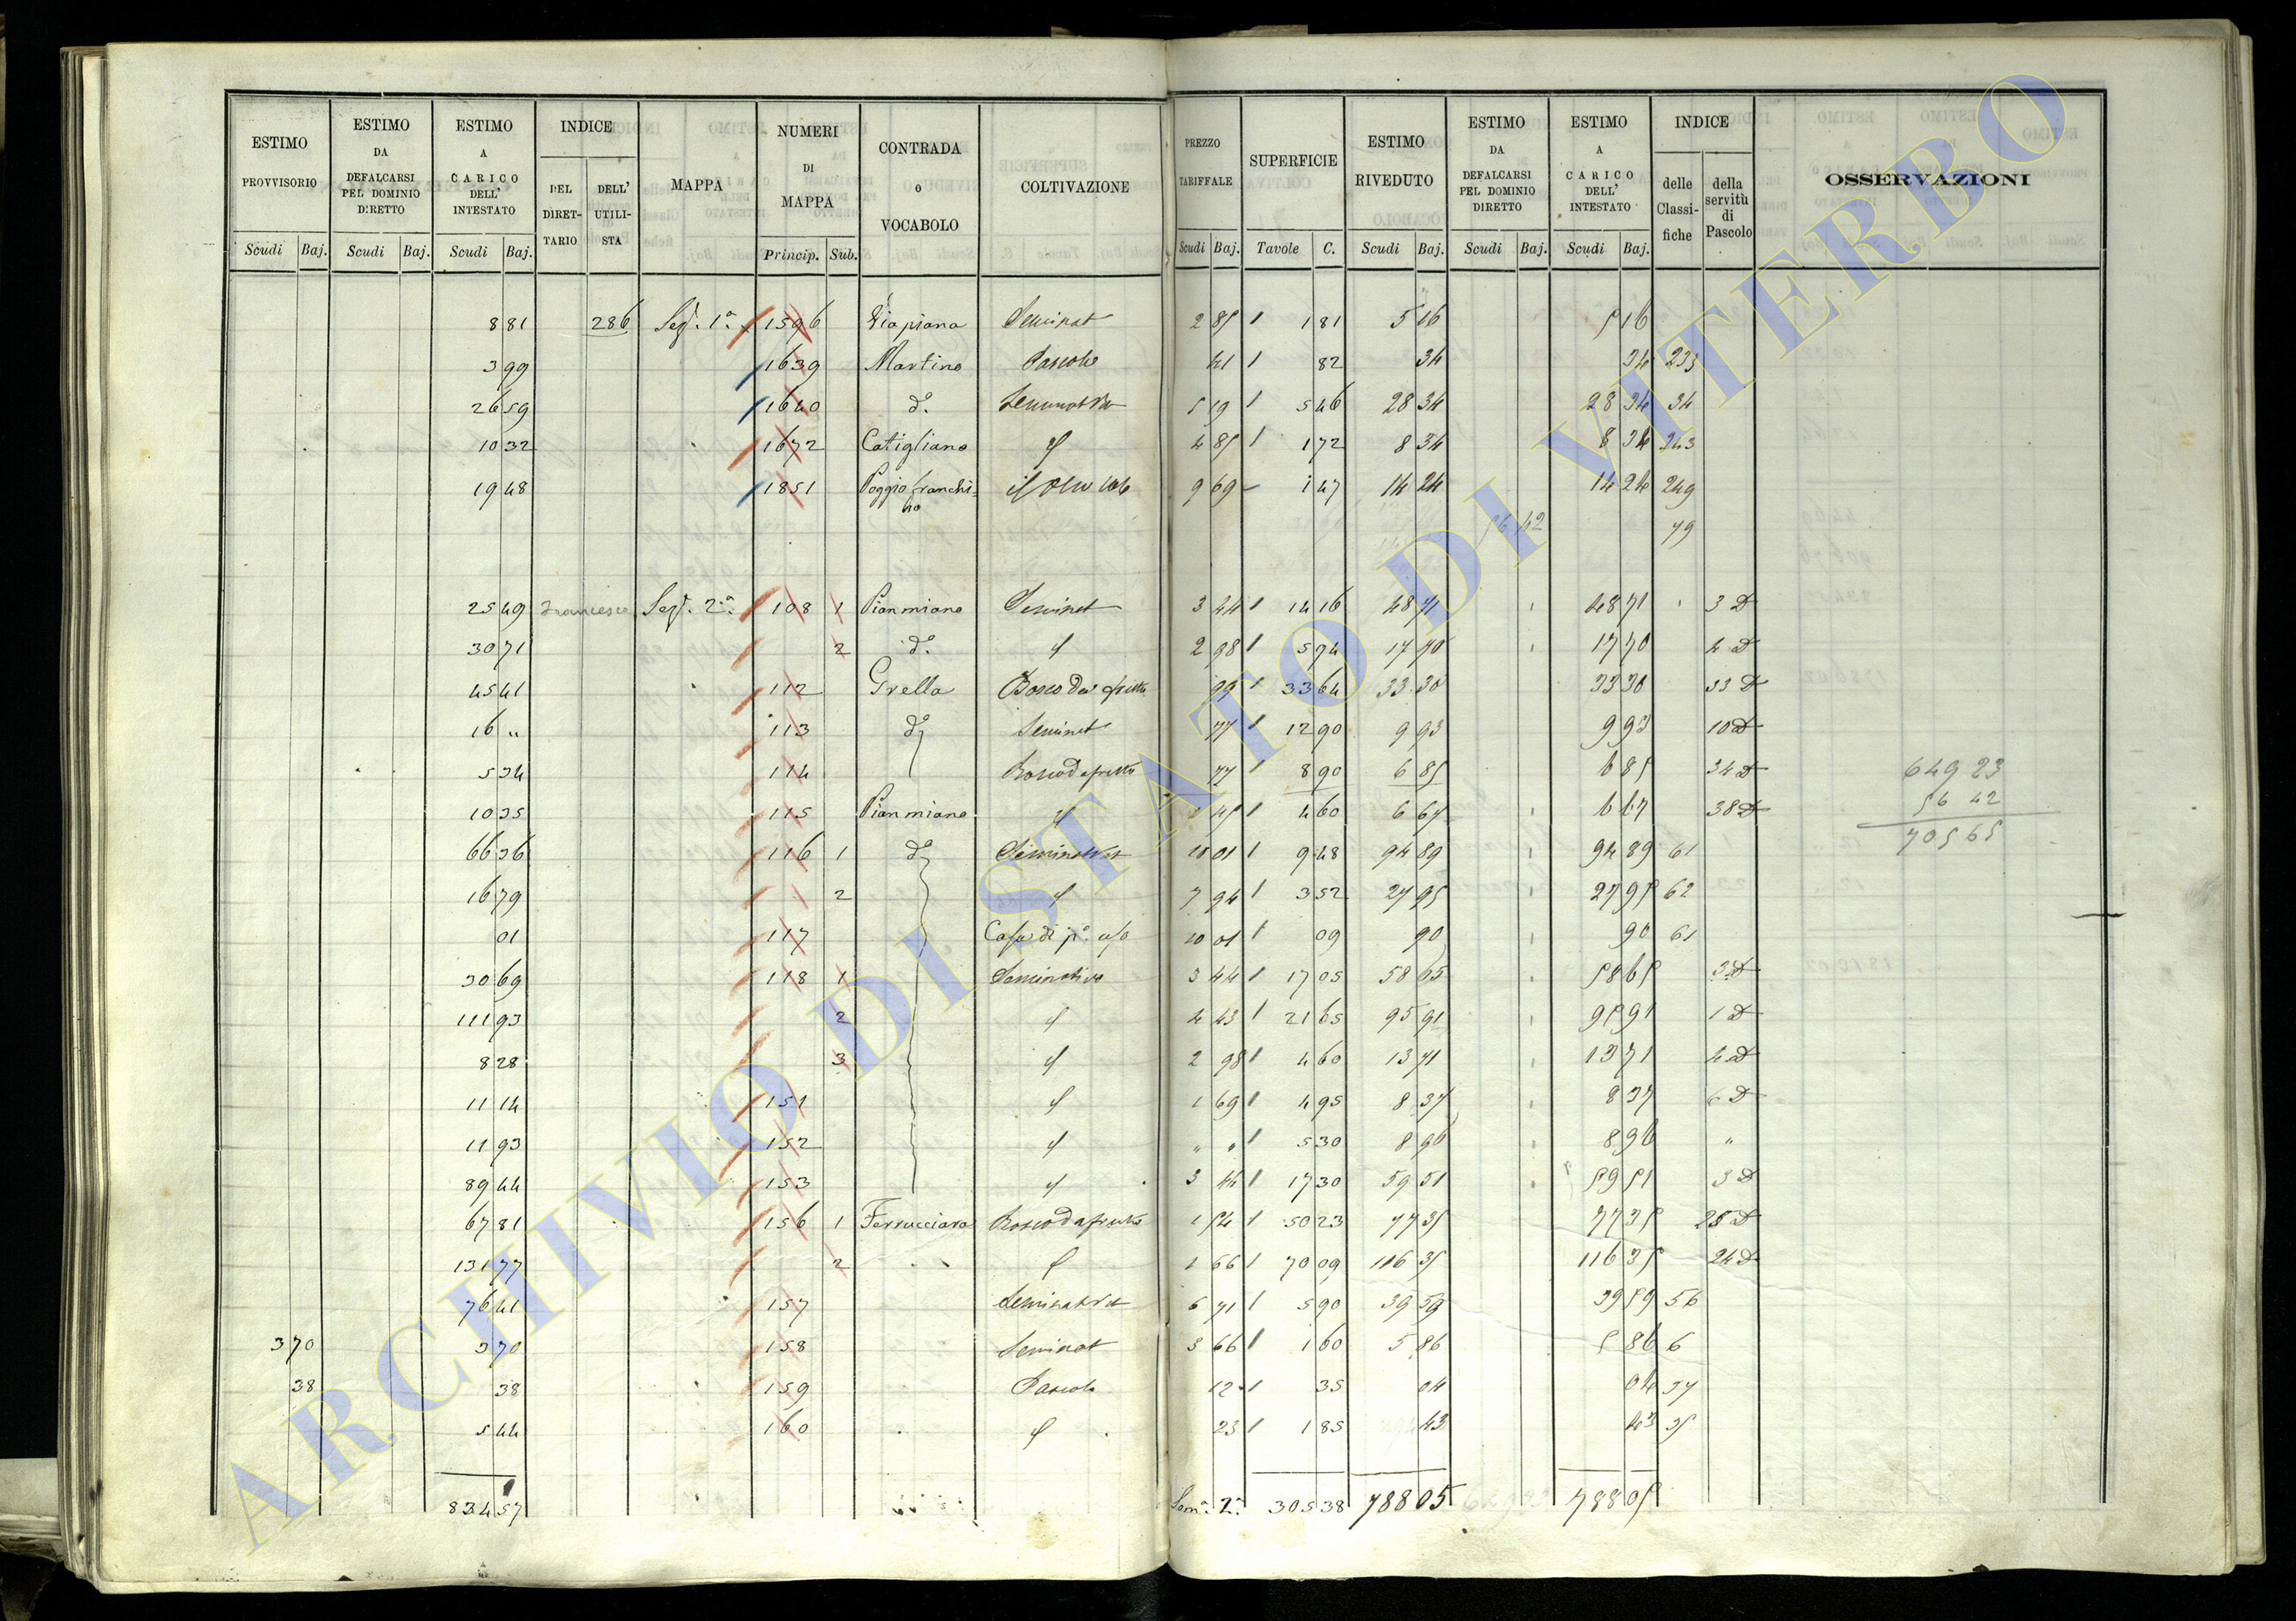 ESTIMO PROVVISORIO | ESTIMO DA DEFALCARSI PEL DOMINIO DIRETTO | ESTIMO A CARICO DELL' INTESTATO | INDICE DEL DIRETTARIO | DELL' UTILISTA | MAPPA | NUMERI DI MAPPA | CONTRADA O VOCABOLO | COLTIVAZIONE | PREZZO TARIFFALE | SUPERFICIE | ESTIMO RIVEDUTO | ESTIMO DA DEFALCARSI PEL DOMINIO DIRETTO | ESTIMO A CARICO DELL' INTESTATO | INDICE delle Classifiche | della servitù di Pascolo | OSSERVAZIONI
Scudi Baj. | Scudi Baj. | Scudi Baj. | Princip. Sub. | Scudi Baj. | Tavole C. | Scudi Baj. | Scudi Baj. | Scudi Baj.
8 81 | 286 | Sez. 1ª | 1596 | Viapiana | Seminat | 2 85 | 1 81 | 5 16 | 5 16
3 99 | 1639 | Martino | Pascolo | 41 | 82 | 34 | 34 | 233
26 59 | 1640 | dº | 5 19 | 5 46 | 28 34 | 28 34 | 34
10 32 | 1672 | Catigliano | 4 85 | 1 72 | 8 34 | 8 34 | 243
19 48 | 1851 | Poggio franchino | 9 69 | 1 47 | 14 24 | 14 24 | 249
56 42 | 79
25 49 | Francesco | Sez. 2ª | 108 | 1 | Pianmiano | Seminat | 3 44 | 14 16 | 48 71 | 48 71 | 3 D
30 71 | 2 | dº | 2 98 | 5 94 | 17 70 | 17 70 | 4 D
45 41 | 112 | Grella | Bosco da frutto | 99 | 33 64 | 33 30 | 33 30 | 33 D
16 " | 113 | dº | Seminat | 77 | 12 90 | 9 93 | 9 93 | 10 D
5 34 | 114 | Bosco da frutto | 77 | 8 90 | 6 85 | 6 85 | 34 D | 649 23
10 35 | 115 | Pianmiano | 1 45 | 4 60 | 6 67 | 6 67 | 38 D | 56 42
66 36 | 116 | 1 | dº | 10 01 | 9 48 | 94 89 | 94 89 | 61 | 705 65
16 79 | 2 | 7 94 | 3 52 | 27 95 | 27 95 | 62
01 | 117 | Casa di pº uso | 10 01 | 09 | 90 | 90 | 61
30 69 | 118 | 1 | Seminativo | 3 44 | 17 05 | 58 65 | 58 65 | 3 D
111 93 | 2 | 4 43 | 21 65 | 95 91 | 95 91 | 1 D
8 28 | 3 | 2 98 | 4 60 | 13 71 | 13 71 | 4 D
11 14 | 151 | 1 69 | 4 95 | 8 37 | 8 37 | 6 D
11 93 | 152 | " " | 5 30 | 8 96 | 8 96 | "
89 44 | 153 | 3 44 | 17 30 | 59 51 | 59 51 | 3 D
67 81 | 156 | 1 | Ferrucciara | Bosco da frutto | 1 54 | 50 23 | 77 35 | 77 35 | 25 D
131 77 | 2 | 1 66 | 70 09 | 116 35 | 116 35 | 24 D
76 41 | 157 | 6 71 | 5 90 | 39 59 | 39 59 | 56
3 70 | 3 70 | 158 | Seminat | 3 66 | 1 60 | 5 86 | 5 86 | 6
38 | 38 | 159 | Pascolo | 12 | 35 | 04 | 04 | 37
5 44 | 160 | 23 | 1 85 | 43 | 43 | 35
834 57 | Somª 2ª | 305 38 | 788 05 | 788 05
ARCHIVIO DI STATO DI VITERBO